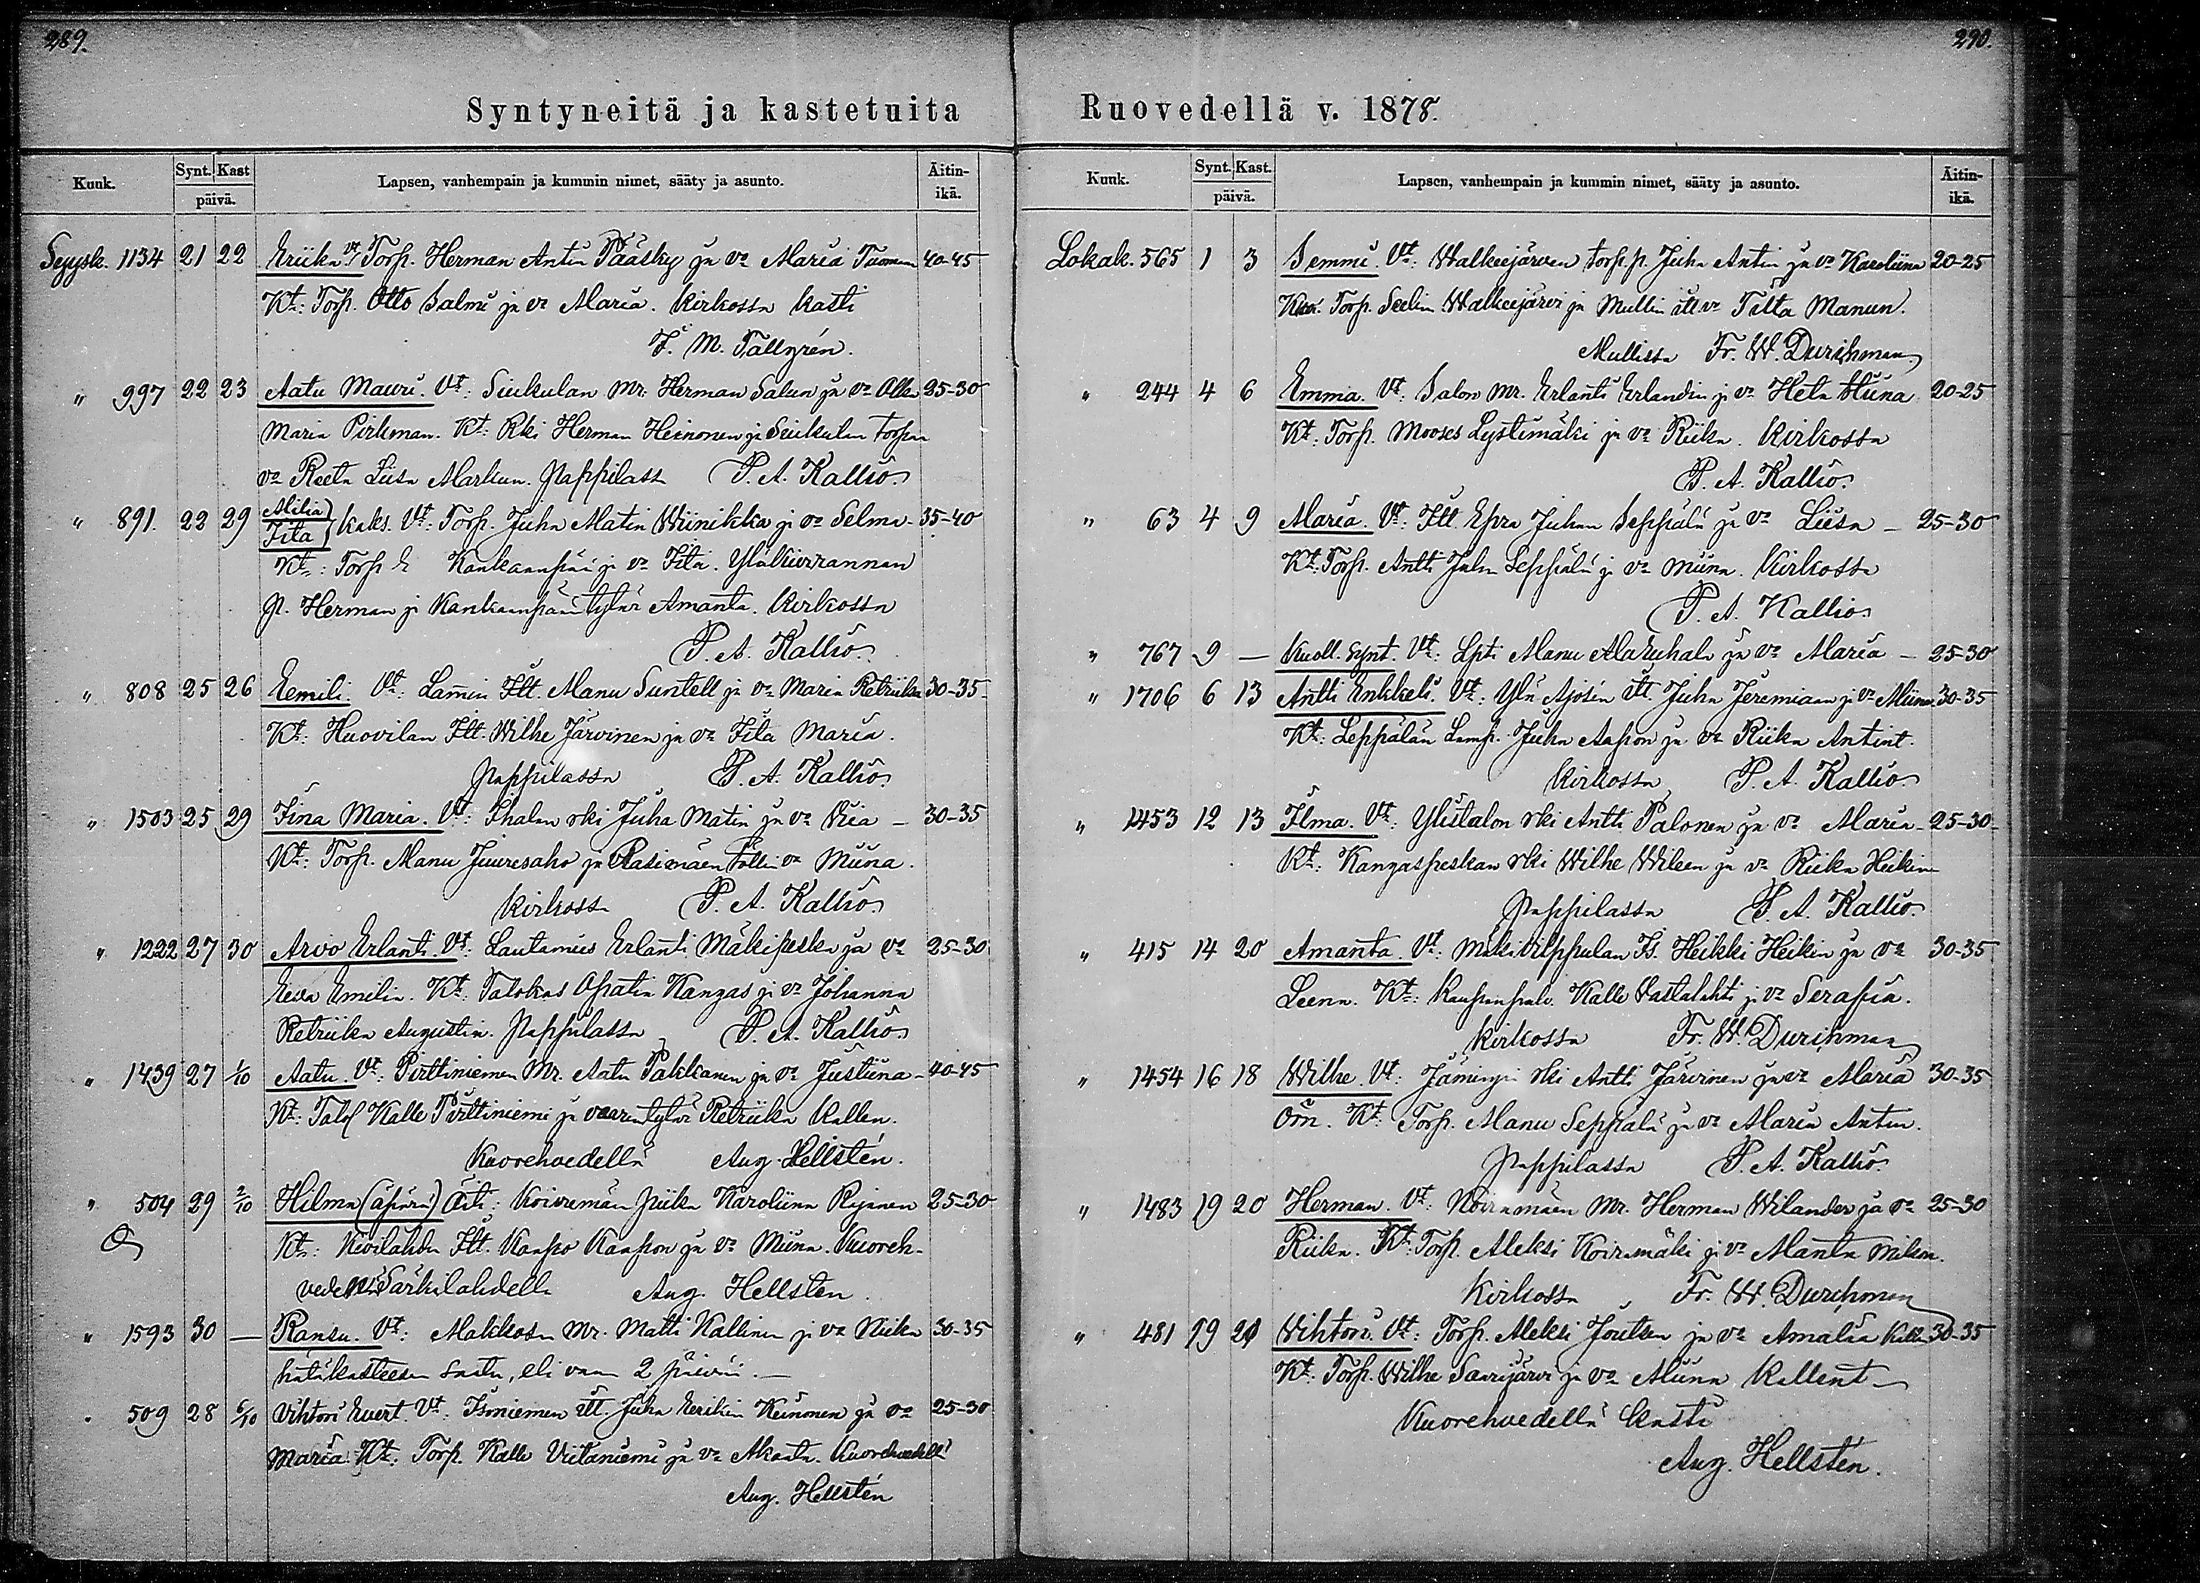 289.
Syntyneitä ja kastetuita
Kuuk. Synt. Kast päivä. Lapsen, vanhempain ja kummin nimet, sääty ja asunto. Äitin-ikä.
Syysk. 1134 21 22 Eriika Vt. Torp. Herman Antin Pääsky ja vo Maria Tuomen 40-45
Kt: Torp. Otto Salmi ja vo Maria. Kirkossa kasti
F. M. Tallgrén.
" 997 22 23 Aatu Mauri. Vt: Siukulan Mr. Herman Salun ja vo Alb. 25-30
Maria Pirkman. Kt: Rki Herman Heinonen ja Siukulan torpan
vo Reeta Liisa Markun. Pappilassa P. A. Kallio.
" 891. 22 29 Milia Fita kaks. Vt: Torp. Juha Matin Wiinikka ja vo Selma 35-40
Kt: Torp. E Kankaanpää ja vo Fita. Yläkivirannan
p. Herman ja Kankaanpään tytär Amanta. Kirkossa
P. A. Kallio.
" 808 25 26 Eemili. Vt: Lamin Itt. Manu Suntell ja vo Maria Retriika 30-35
Kt: Huovilan Itt. Wilhe Järvinen ja vo Fita Maria.
Pappilassa P. A. Kallio.
" 1503 25 29 Fina Maria. Vt: Ihalan rki Juha Matin ja vo Via - 30-35
Kt: Torp. Manu Juuresaho ja Rasimäen vo Miina.
Kirkossa P. A. Kallio
" 1222 27 30 Arvo Erlanti. Vt: Lautamies Erlanti Mäkipeska ja vo 25-30
Eeva Emilia. Kt: Talokas Apatin Kangas ja vo Johanna
Retriika Augustin. Pappilassa P. A. Kallio
" 1439 27 1/10 Aatu. Vt: Pirttiniemen Mr. Aatu Pakkanen ja vo Justiina 40-45
Kt: Talol Kalle Pirttiniemi ja vaarin tytär Retriika Kallen.
Kuorehvedellä Aug. Hellstén.
" 504 29 2/10 Hilma (äpärä) Äiti: Koivumän piika Karoliina Rajanen 25-30
Kt: Itt. Kaapo Kaapon ja vo Miina. Kuoreh-
veden Särkilahdella Aug. Hellsten
" 1593 30 — Ransu. Vt: Makkosn Mr. Matti Kallinen ja vo Riika 30-35
hätäkasteesen saatu, eli vaan 2 päivää.
" 509 28 6/10 Vihtori Evert. Vt: Isoniemen itt Juha Eerikin Keinonen ja vo 25-30
Maria. Kt: Torp. Kalle Viitaniemi ja vo Akaata. Kuorehvedellä
Aug. Hellstén
290.
Ruovedellä v. 1878.
Kuuk. Synt. Kast. päivä. Lapsen, vanhempain ja kummin nimet, sääty ja asunto. Äitin-ikä.
Lokak. 565 1 3 Semmi. Vt: Walkeejärven torp. p. Juha Antin ja vo Karoliina 20-25
Torp. Seelin Walkeejärvi ja Mullin itt vo Tilta Manun.
Mullissa Fr. W. Durchman
" 244 4 6 Emma. Vt: Salon Mr. Erlanti Erlandin ja vo Heta Miina 20-25
Kt: Torp. Mooses Lystimäki ja vo Riika. Kirkossa
P. A. Kallio.
" 63 4 9 Maria. Vt: Itt. Epra Juhan Seppälä ja vo Liisa - 25-30
Kt: Torp. Antti Juhn Seppälä ja vo Miina. Kirkossa
P. A. Kallio
" 767 9 — Kuoll. synt. Vt: Lpti Manu ja vo Maria - 25-30
" 1706 6 13 Antti Enkkeli. Vt: Ylä Ajosin itt Juha Jeremiaan ja vo Miina 30-35
Kt: Leppälän Lamp. Juha Aapon ja vo Riika Antint.
Kirkossa P. A. Kallio
" 1453 12 13 Ilma. Vt: Ylistalon rki Antti Palonen ja vo Maria. 25-30
Kt: Kangaspeskan rki Wilhe Wileen ja vo Riika Heikin
Pappilassa P. A. Kallio
" 415 14 20 Amanta. Vt: Mäkivilppulan Is. Heikki Heikin ja vo 30-35
Leena. Kt: Kaupanpalv. Kalle Vastalahti ja vo Serafia.
Kirkossa Fr. W. Durchman
" 1454 16 18 Wilhe. Vt: Jämingin rki Antti Järvinen ja vo Maria 30-35
Örn. Kt: Torp. Manu Seppälä ja vo Maria Antin.
Pappilassa P. A. Kallio
" 1483 19 20 Herman. Vt: Koiramäen Mr. Herman Wilander ja vo 25-30
Riika. Kt: Torp. Aleksi Koiramäki ja vo Manta Mikon.
Kirkossa Fr. W. Durchman
" 481 19 21 Wihtori. Vt: Torp. Aleksi Joutsen ja vo Amalia Kallen 30-35
Kt: Torp. Wilhe Saarijärvi ja vo Miina Kallent
Kuorehvedellä kasti
Aug. Hellstén.